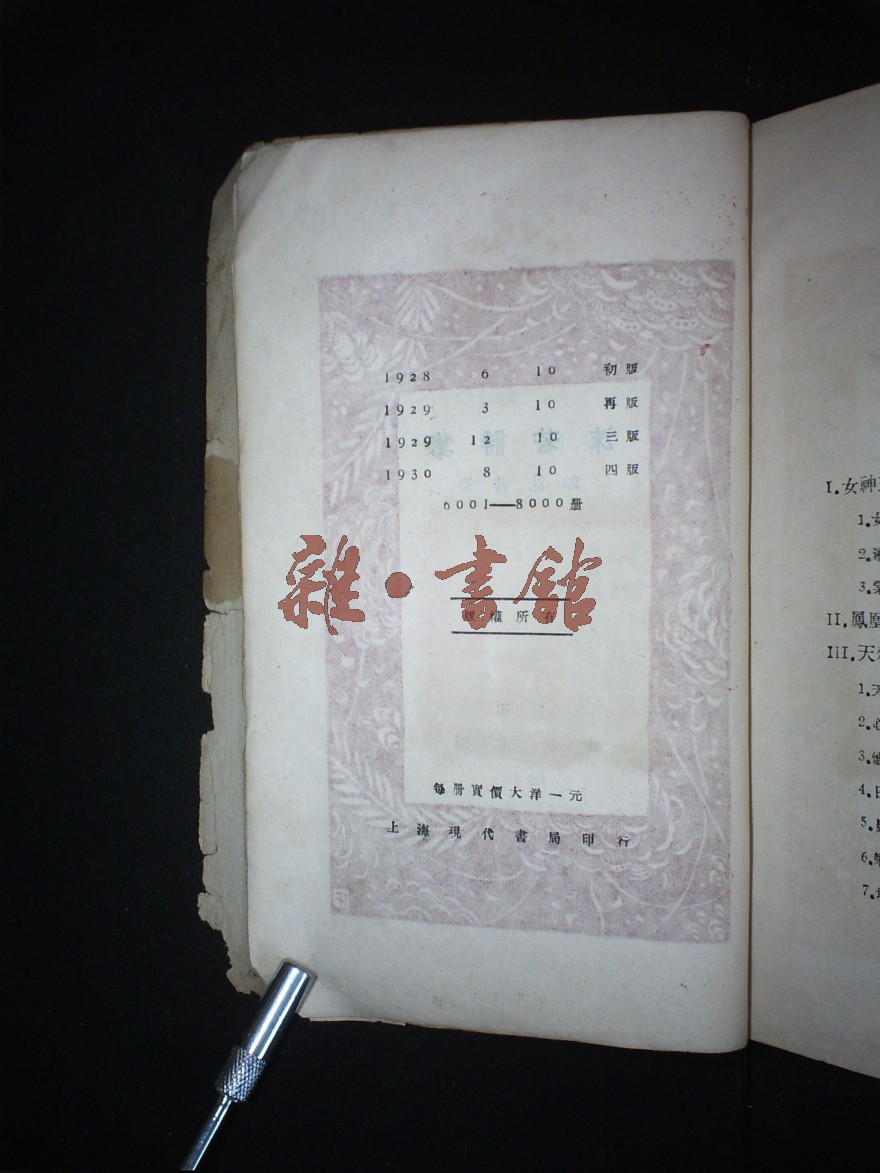 1928 6 10 初版
1929 3 10 再版
1929 12 10 三版
1930 8 10 四版
6001—8000册
雜•書館
版權所有
每册實價大洋一元
上海現代書局印行
I.女神
1.女
2.湘
3.棠
II.鳳凰
III.天
1.天
2.心
4.日
7.地